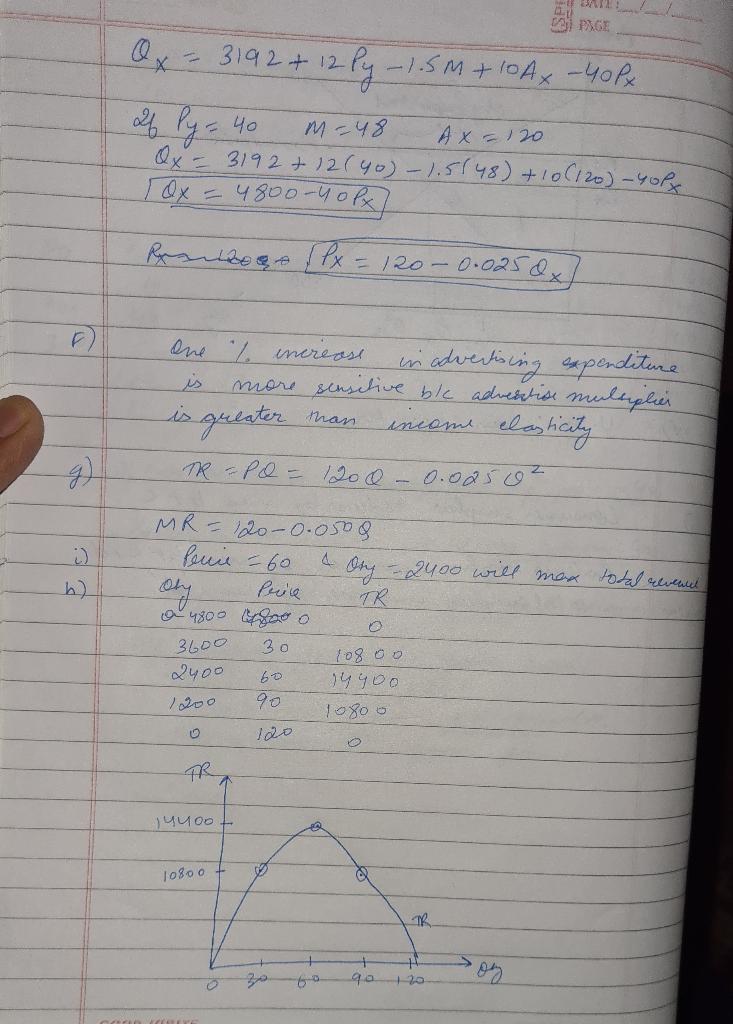 DATE: / /
PAGE
Qx = 3192 + 12 Py - 1.5M + 10Ax - 40Px
If Py = 40 M = 48 Ax = 120
Qx = 3192 + 12(40) - 1.5(48) + 10(120) - 40Px
Qx = 4800 - 40Px
Px = 120 - 0.025Qx
F) One % increase in advertising expenditure
is more sensitive b/c advertise multiplier
is greater than income elasticity
g) TR = PQ = 120Q - 0.025Q²
MR = 120 - 0.050Q
i) Price = 60 & Qty = 2400 will max total revenue
h) Qty Price TR
4800 0 0
3600 30 10800
2400 60 14400
1200 90 10800
0 120 0
TR
14400
10800
TR
0 30 60 90 120 Qty